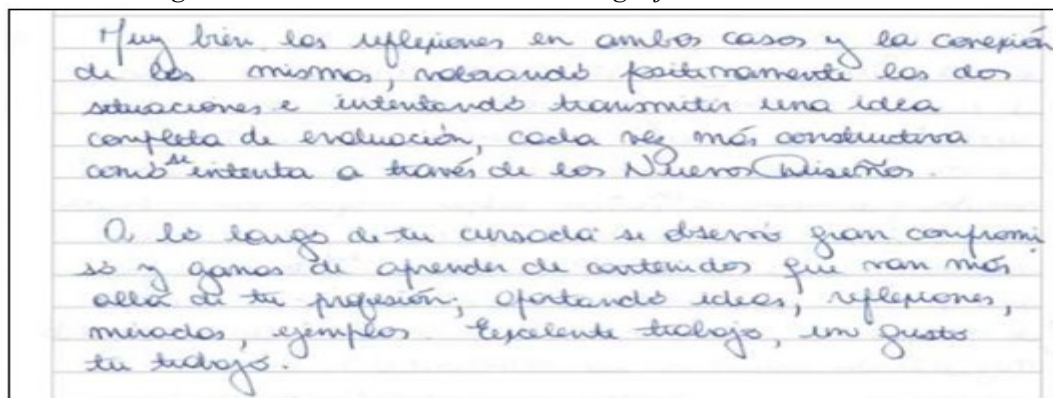 Muy bien las reflexiones en ambos casos y la conexión
de los mismos, valorando positivamente las dos
situaciones e intentando transmitir una idea
completa de evaluación, cada vez más constructiva
como se intenta a través de los Nuevos Diseños.
A lo largo de tu cursada se observó gran compromi
so y ganas de aprender de contenidos que van más
allá de tu profesión; aportando ideas, reflexiones,
miradas, ejemplos. Excelente trabajo, un gusto
tu trabajo.